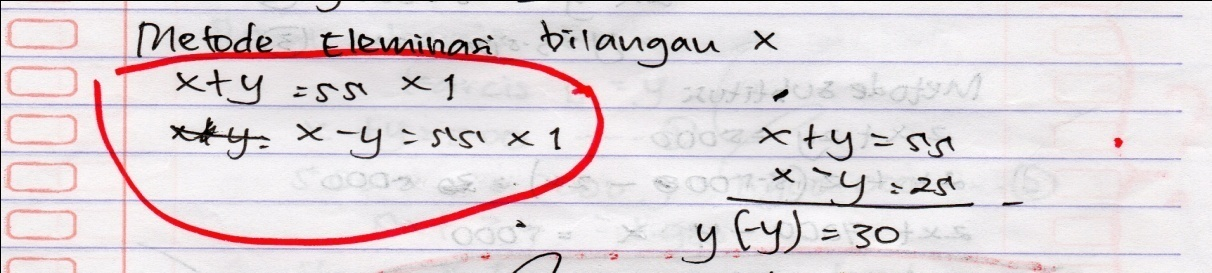 Metode Eleminasi bilangan x
x+y = 55 x 1
x - y = 55 x 1
x + y = 55
x - y = 25
y (-y) = 30